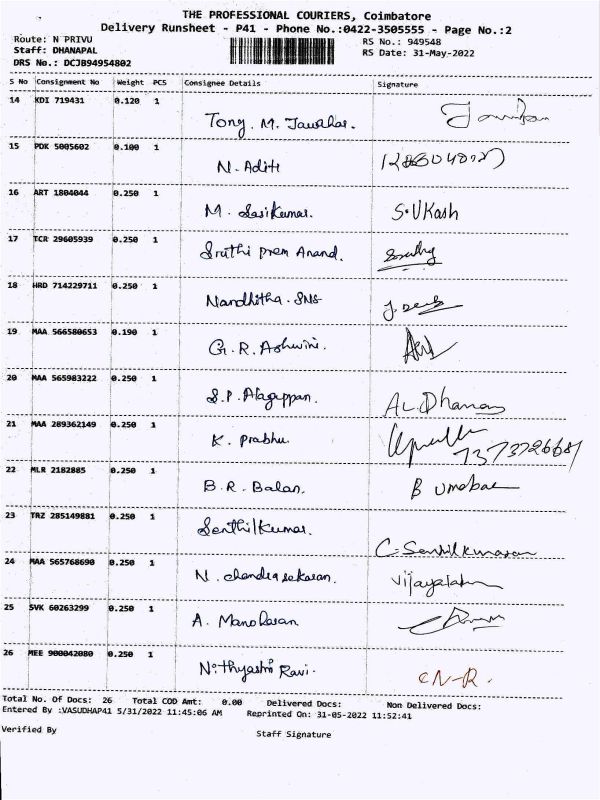 THE PROFESSIONAL COURIERS, Coimbatore
Delivery Runsheet - P41 - Phone No.:0422-3505555 - Page No.:2
Route: N PRIVU RS No.: 949548
Staff: DHANAPAL RS Date: 31-May-2022
DRS No.: DCJB94954802
S No Consignment No Weight PCS Consignee Details Signature
14 KDI 719431 0.120 1
Tony. M. Jawahar.
15 PDK 5005602 0.100 1
N. Aditi
16 ART 1804044 0.250 1
M. Sasikumar. S.VKash
17 TCR 29605939 0.250 1
Sruthi prem Anand.
18 HRD 714229711 0.250 1
Nandhitha. SNS
19 MAA 566580653 0.190 1
G.R. Ashwini.
20 MAA 565983222 0.250 1
S.P. Alagappan. AL Dhanas
21 MAA 289362149 0.250 1
K. Prabhu 7373726681
22 MLR 2182885 0.250 1
B.R. Balan. B Umabae
23 TRZ 285149881 0.250 1
Senthilkumar.
C. Senthilkumaran
24 MAA 565768690 0.250 1
N. chandrasekaran. vijayalakm
25 SVK 60263299 0.250 1
A. Manokaran
26 MEE 900042080 0.250 1
Nithyashri Ravi. CN-R.
Total No. Of Docs: 26 Total COD Amt: 0.00 Delivered Docs: Non Delivered Docs:
Entered By :VASUDHAP41 5/31/2022 11:45:06 AM Reprinted On: 31-05-2022 11:52:41
Verified By Staff Signature